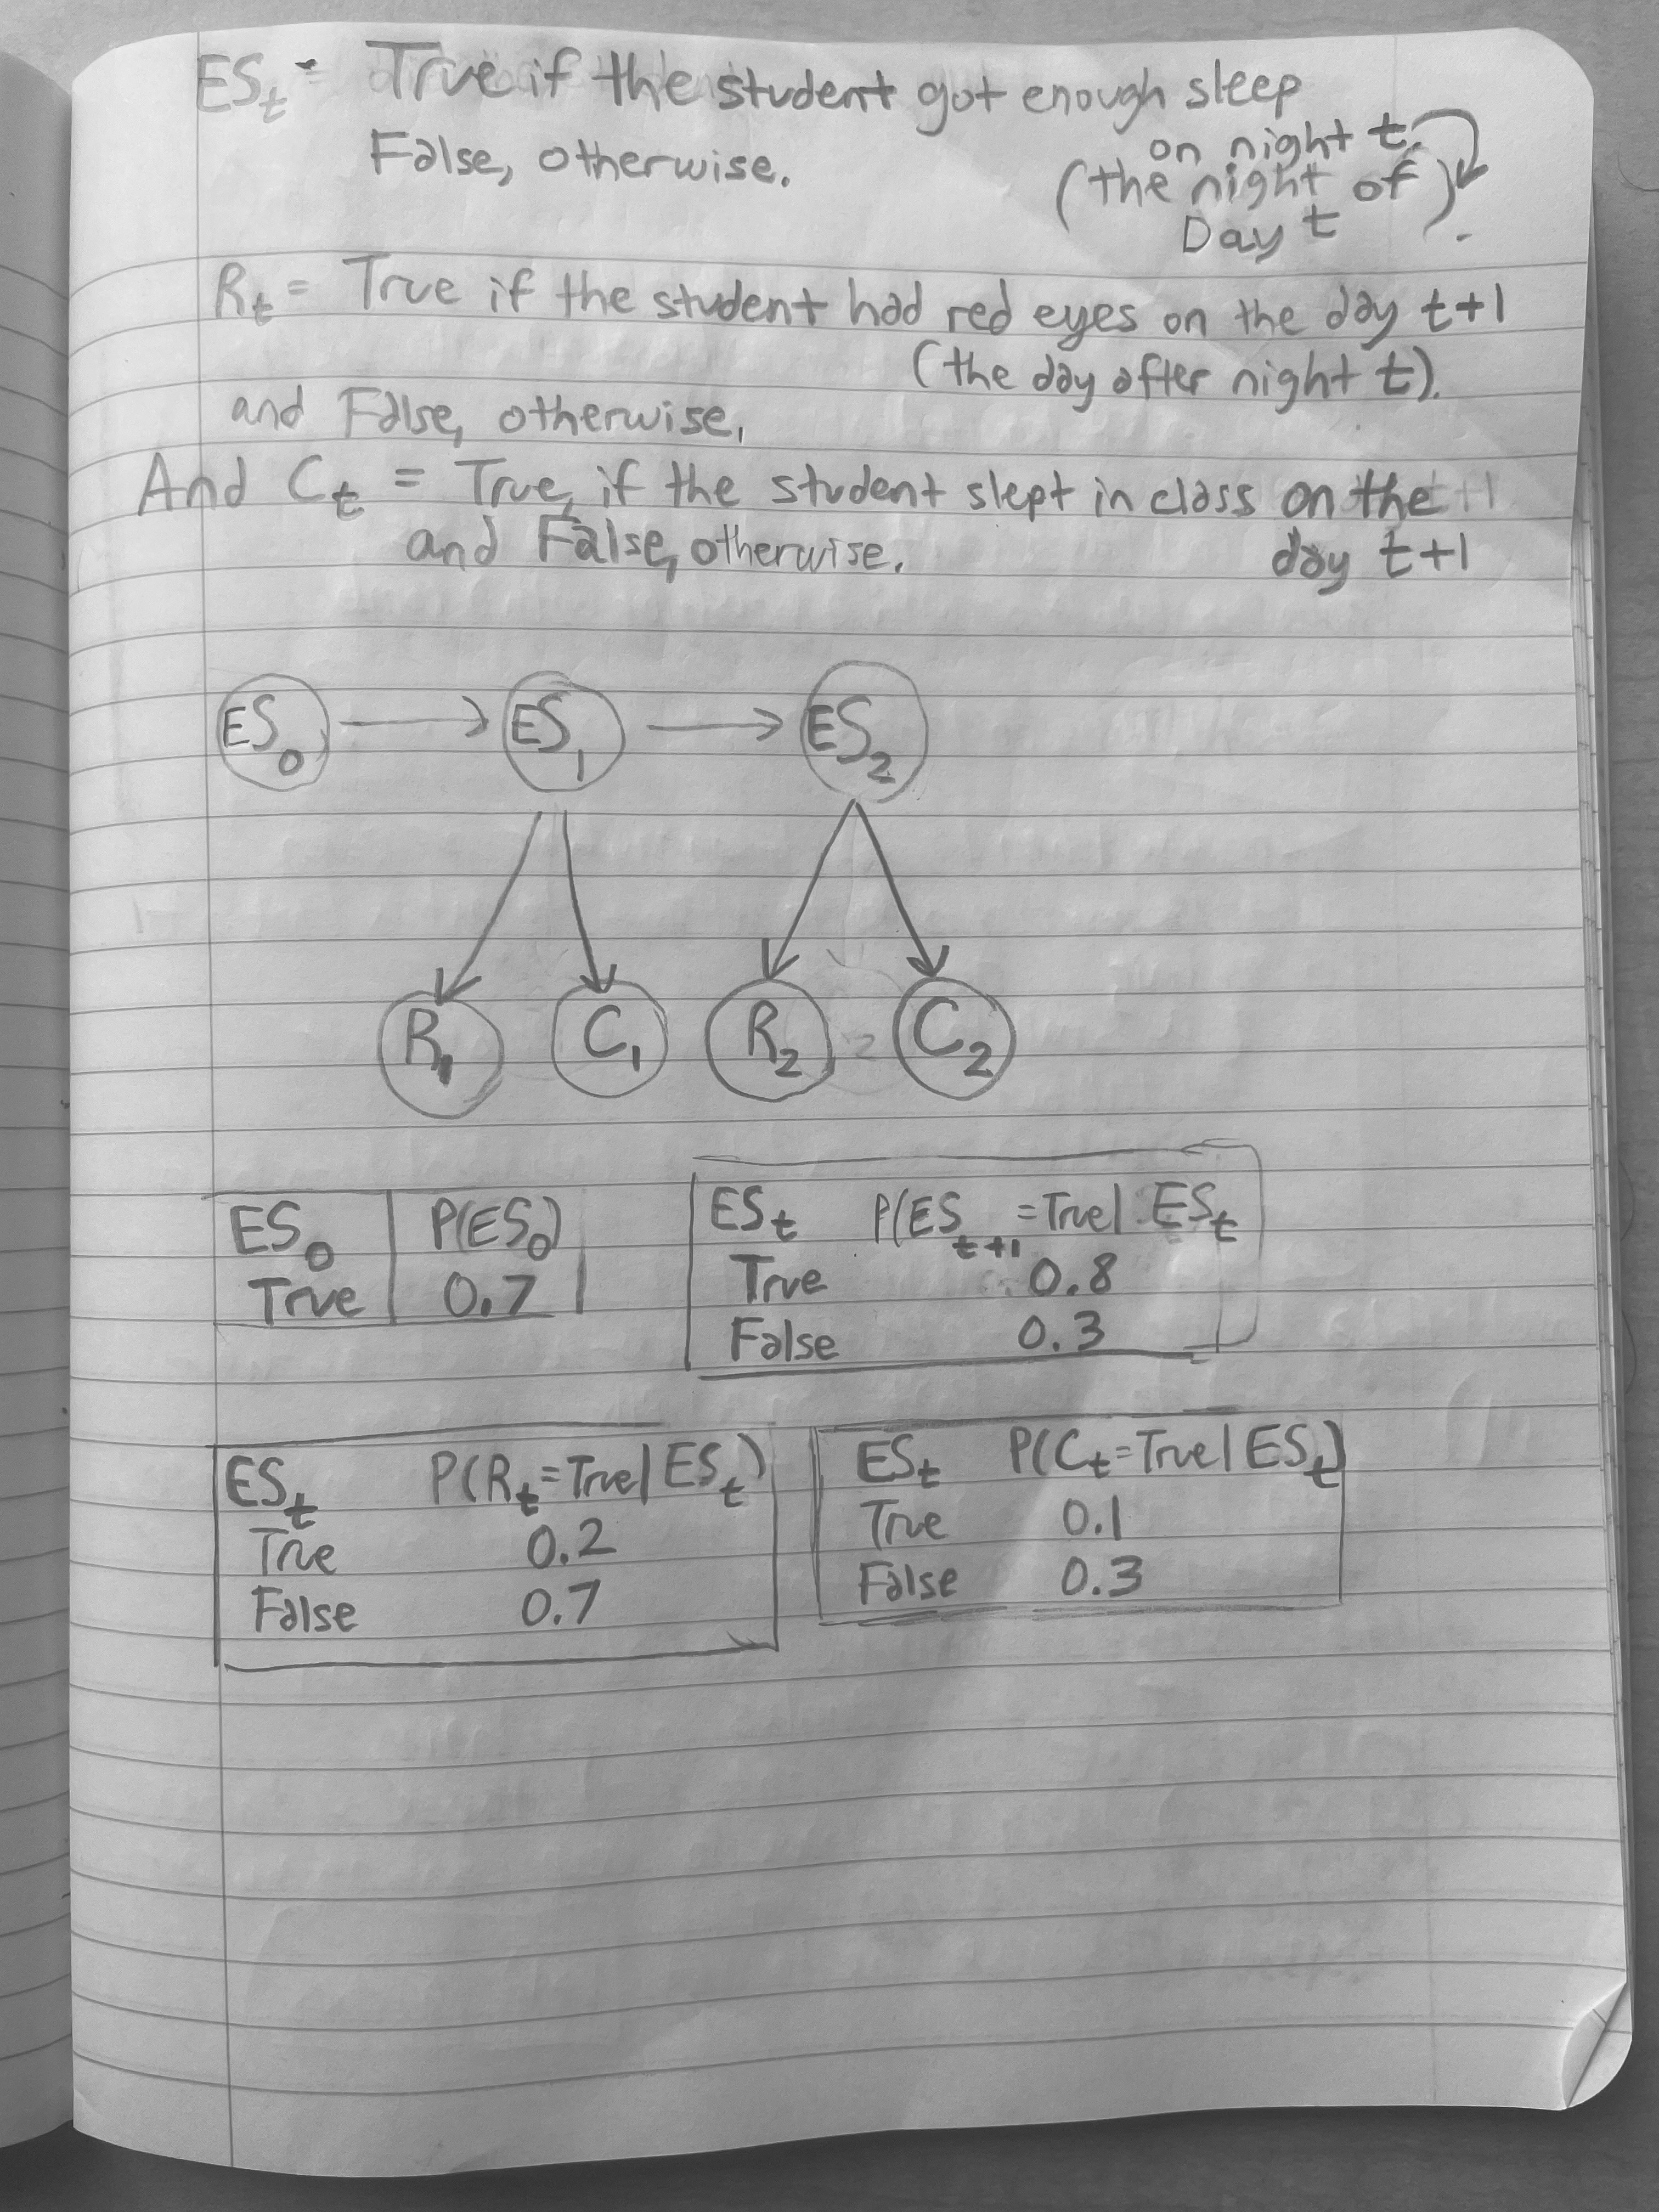 ES_t = True if the student got enough sleep
on night t.
False, otherwise.
(the night of)
Day t .
R_t = True if the student had red eyes on the day t+1
(the day after night t).
and False, otherwise,
And C_t = True, if the student slept in class on the
and False, otherwise. day t+1
ES_0 ES_1 ES_2
R_1 C_1 R_2 C_2
ES_0 P(ES_0)
True 0.7
ES_t P(ES_t+1 =True| ES_t
True 0.8
False 0.3
ES_t P(R_t=True|ES_t)
True 0.2
False 0.7
ES_t P(C_t=True|ES_t)
True 0.1
False 0.3